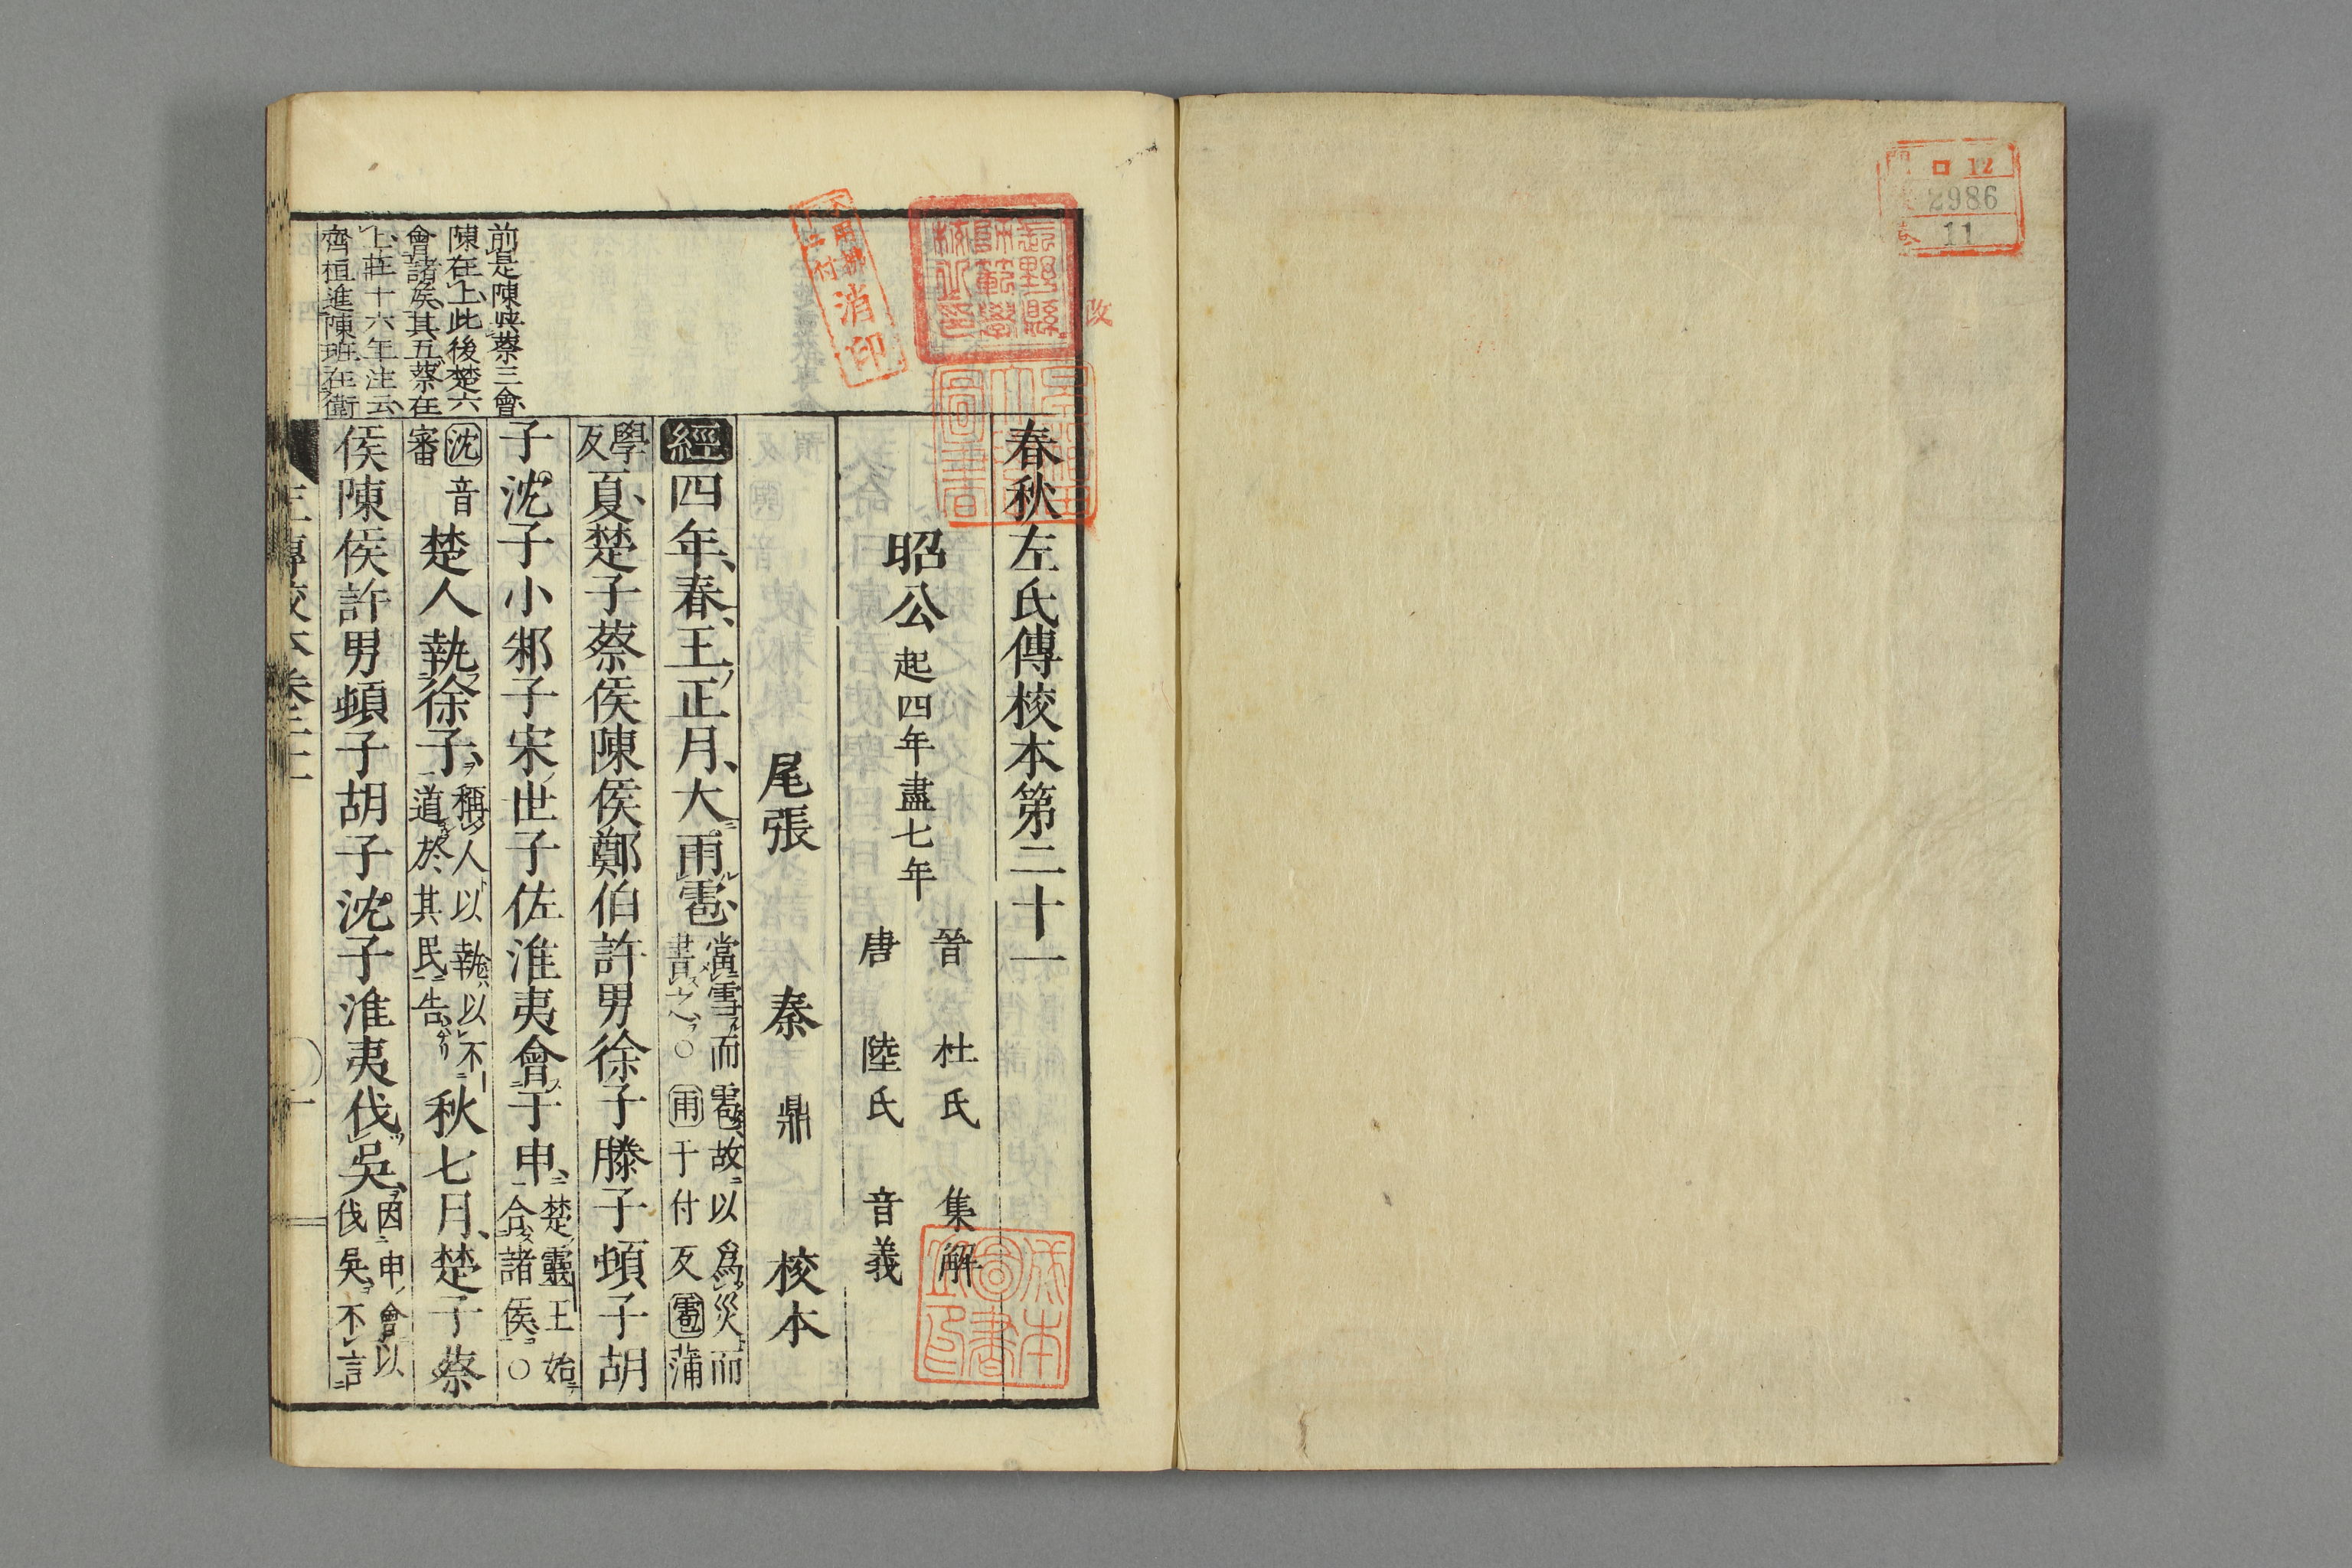 口 12
2986
11
春秋左氏傳校本第二十一
昭公 起四年盡七年
晉 杜氏 集解
唐 陸氏 音義
尾張 秦 鼎 校本
經四年春王正月大雨雹 當雪而雹故以爲災而
書之○雨于付反雹蒲
學反
夏楚子蔡侯陳侯鄭伯許男徐子滕子頓子胡
子沈子小邾子宋世子佐淮夷會于申 楚靈王始
合諸侯○
沈音
審
楚人執徐子 稱人以執以不
道於其民告
秋七月楚子蔡
侯陳侯許男頓子胡子沈子淮夷伐吳 因申會以
伐吳不言
前是陳與蔡三會
陳在上此後楚六
會諸侯其五蔡在
上莊十六年注云
齊桓進陳班在衛
消印
改